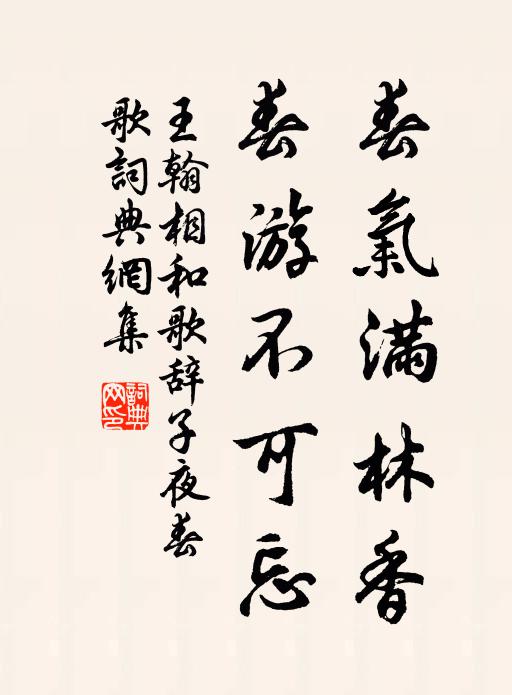 春氣滿林香
春游不可忘
王翰相和歌辞子夜春
歌詞典網集
詞典
網印